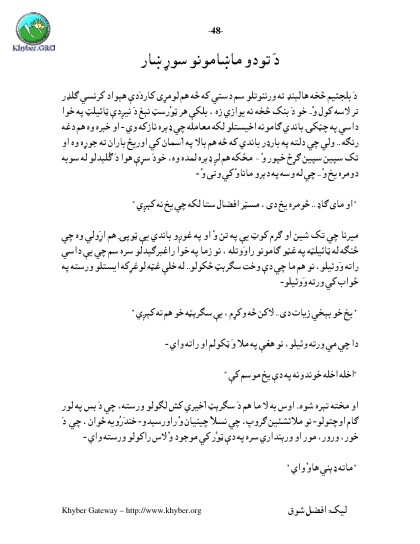 -48-
Khyber.ORG
دَ تودو ماښامونو سوړ ښار
دَ بلجئيم څخه هالېنډ ته ورننوتلو سم دستي که څه هم لومړی کار دَدې هېواد کرنسي ګلډر
تر لاسه کول وْ. خو دَ بنک څخه نه يوازې زه ، بلکې هر ټُورسټ نېغ دَ نږدې ټائيلټ په خوا
داسې په چټکۍ باندې ګامونه اخيستلو لکه معامله چې ډېره نازکه وي - او خبره وه هم دغه
رنګه.. ولې چې دلته په بارډر باندې که څه هم بالا په آسمان کې اورېځ باران ته جوړه وه او
تک سپين سپين ګرځ خپور وْ - مځکه هم لږ ډېره لمده وه، خو دَ سړې هوا دَ لګېدلو له سوبه
دومره يخ وْ.. چې له وسه په ډېرو مانا وْ کې وتی وْ -
"او مای ګاډ.. څومره يخ دی ، مسټر افضال ستا لکه چې يخ نه کېږي"
ميرنا چې تک شين او ګرم کوټ يې په تن وْ او په غوږو باندې يې ټوپۍ هم اړولې وه چې
څنګه له ټائيلټه په غټو ګامونو راووتله ، نو زما په خوا راغبرګېدلو سره سم چې يې داسې
راته ووئيلو ، نو هم ما چې دې وخت سګرېټ څکولو.. له خلې غټه لوغړکه ايستلو ورسته په
ځواب کې ورته ووئيلو-
"يخ خو بېخي زيات دی.. لاکن څه وکړم ، بې سګرېټه خو هم نه کېږي"
دا چې مې ورته ووئيلو ، نو هغې په ملا وْ ټکولم او راته واي -
"اخله اخله خوند ونه په دې يخ موسم کې"
او مخته تېره شوه. اوس به لا ما هم دَ سګرېټ اخيري کش لګولو ورسته، چې دَ بس په لور
ګام اوچتولو- نو ملائشئين ګروپ، چې نسلاً چينيان وْ راورسيدو- خندَروْيه ځوان ، چې دَ
خور، ورور، مور او ورېندارې سره په دې ټوْر کې موجود وْ لاس راکولو ورسته واي -
"ماته ډېنې هاوْ واي"
Khyber Gateway – http://www.khyber.org
ليک: افضل شوق